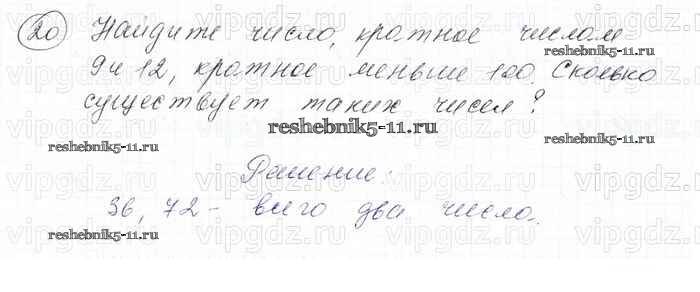 20 Найдите число, кратное числам
9 и 12, кратное меньше 100. Сколько
существует таких чисел?
Решение:
36, 72 - всего два число.
reshebnik5-11.ru
reshebnik5-11.ru
reshebnik5-11.ru
reshebnik5-11.ru
reshebnik5-11.ru
vipgdz.com vipgdz.com vipgdz.com